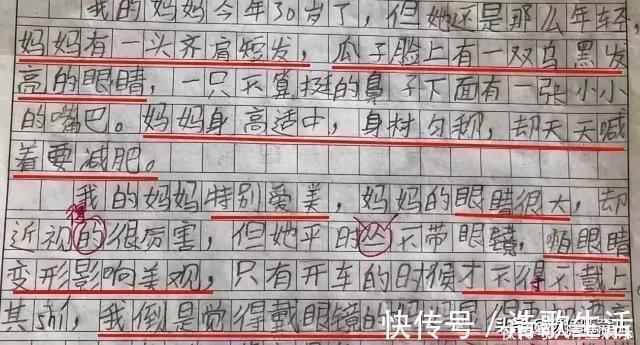 我的妈妈今年30岁了，但她还是那么年轻，
妈妈有一头齐肩短发，瓜子脸上有一双乌黑发
亮的眼睛，一只不算挺的鼻子下面有一张小小
的嘴巴。妈妈身高适中，身材匀称，却天天喊
着要减肥。
我的妈妈特别爱美，妈妈的眼睛很大，却
得
近视的很厉害，但她平时从不带眼镜，怕眼睛
变形影响美观，只有开车的时候才不得不戴上
我倒是觉得戴眼镜的妈妈
快传号／逸歌生活